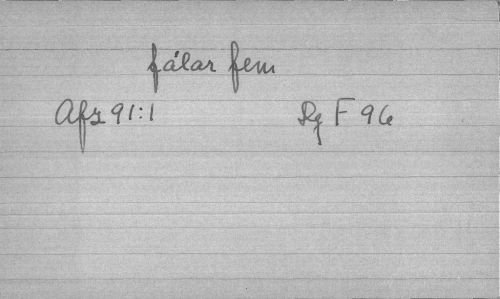 fálar fem
Afz 91:1 Rg F 96